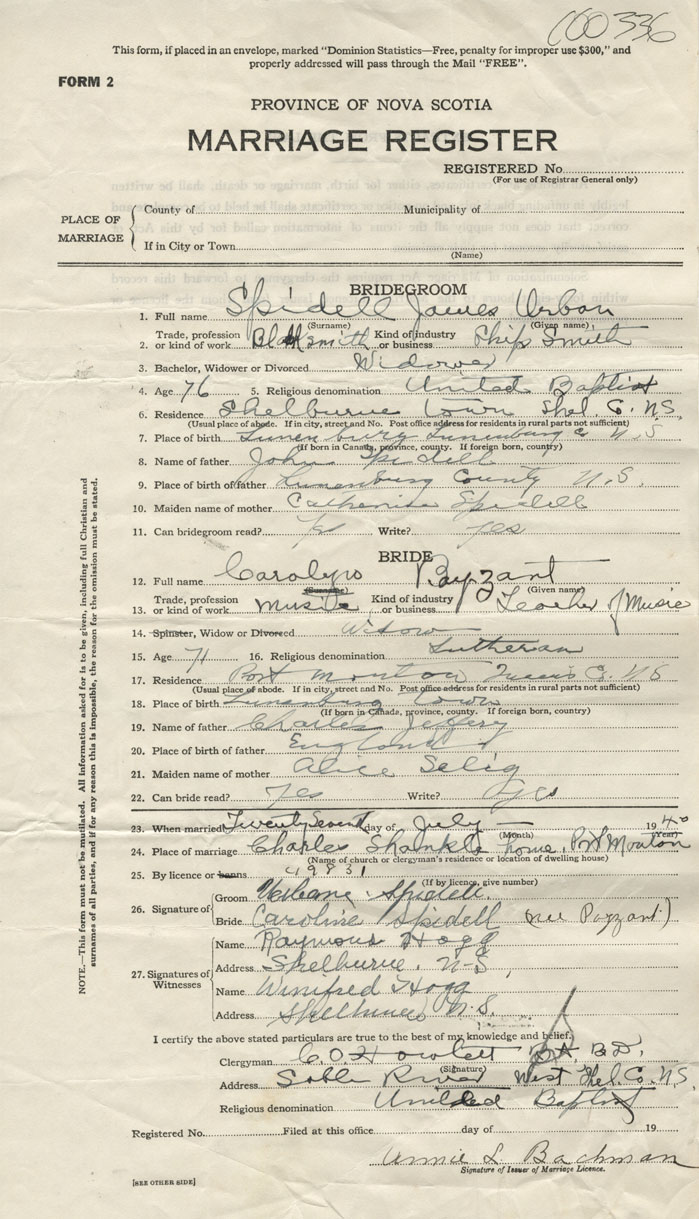 100336
This form, if placed in an envelope, marked "Dominion Statistics—Free, penalty for improper use $300," and
properly addressed will pass through the Mail "FREE".
FORM 2
PROVINCE OF NOVA SCOTIA
MARRIAGE REGISTER
REGISTERED No.
(For use of Registrar General only)
PLACE OF MARRIAGE
County of Municipality of
If in City or Town
(Name)
BRIDEGROOM
1. Full name Spidell James Urban
(Surname) (Given name)
2. Trade, profession or kind of work Blacksmith Kind of industry or business Ship Smith
3. Bachelor, Widower or Divorced Widower
4. Age 76 5. Religious denomination United Baptist
6. Residence Shelburne Town Shel. Co. N.S.
(Usual place of abode. If in city, street and No. Post office address for residents in rural parts not sufficient)
7. Place of birth Lunenburg Lunenburg Co N.S
(If born in Canada, province, county. If foreign born, country)
8. Name of father John Spidell
9. Place of birth of father Lunenburg County N.S.
10. Maiden name of mother Catherine Spidell
11. Can bridegroom read? Yes Write? yes
BRIDE
12. Full name Carolyn Payzant
(Surname) (Given name)
13. Trade, profession or kind of work Music Kind of industry or business Teacher of Music
14. Spinster, Widow or Divorced Widow
15. Age 71 16. Religious denomination Lutheran
17. Residence Port Mouton Queens Co. N.S
(Usual place of abode. If in city, street and No. Post office address for residents in rural parts not sufficient)
18. Place of birth Lunenburg Town
(If born in Canada, province, county. If foreign born, country)
19. Name of father Charles Jeffery
20. Place of birth of father England
21. Maiden name of mother Alice Selig
22. Can bride read? Yes Write? Yes
23. When married Twenty Seventh day of July 1940
(Month) (Year)
24. Place of marriage Charles Shankle home, Port Mouton
(Name of church or clergyman's residence or location of dwelling house)
25. By licence or banns 49831
(If by licence, give number)
26. Signature of
Groom Urbane Spidell.
Bride Caroline Spidell (nee Payzant.)
27. Signatures of Witnesses
Name Raymond Hogg
Address Shelburne, N-S,
Name Winifred Hogg
Address Shelburne N.S.
I certify the above stated particulars are true to the best of my knowledge and belief.
Clergyman C. O. Howlett B.A. B.D.
(Signature)
Address Sable River West Shel. Co. N.S.
Religious denomination United Baptist
Registered No. Filed at this office day of 19
Annie L. Bachman
Signature of Issuer of Marriage Licence.
[SEE OTHER SIDE]
NOTE.—This form must not be mutilated. All information asked for is to be given, including full Christian and
surnames of all parties, and if for any reason this is impossible, the reason for the omission must be stated.